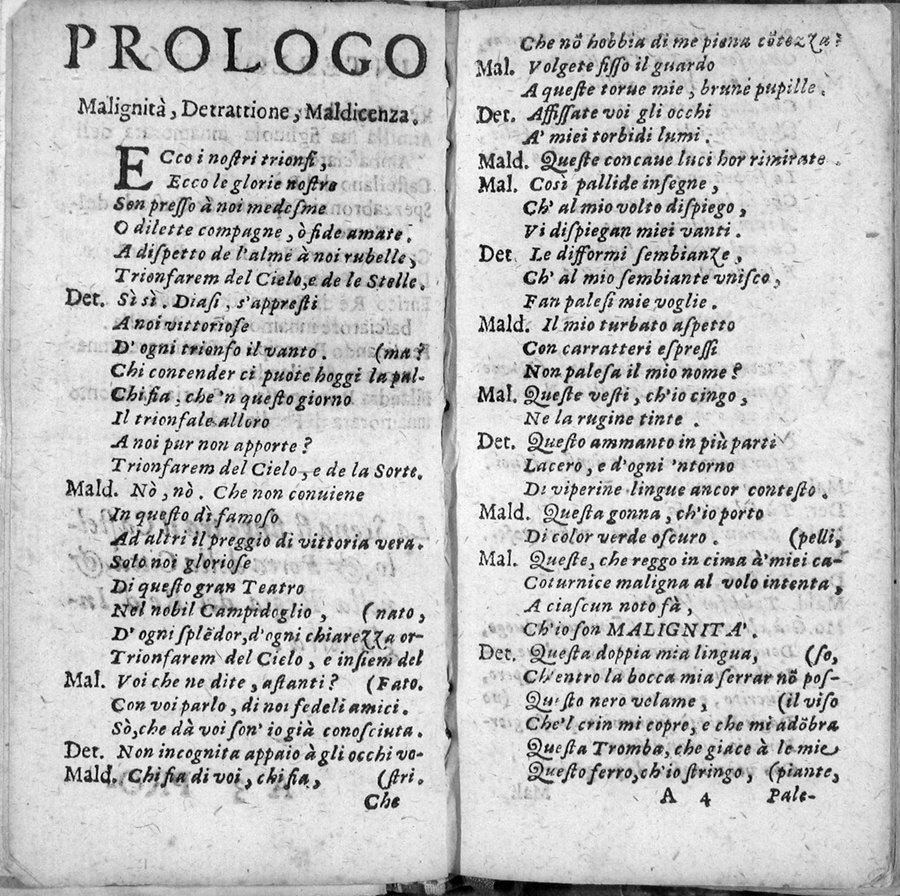 PROLOGO
Malignità, Detrattione, Maldicenza.
Ecco i nostri trionfi,
Ecco le glorie nostre
Son presso à noi medesme
O dilette compagne, ò fide amate.
A dispetto de l'alme à noi rubelle,
Trionfarem del Cielo, e de le Stelle.
Det. Sì sì. Diasi, s'appresti
A noi vittoriose
D'ogni trionfo il vanto. (ma?
Chi contender ci puote hoggi la pal-
Chi fia, che 'n questo giorno
Il trionfale alloro
A noi pur non apporte?
Trionfarem del Cielo, e de la Sorte.
Mald. Nò, nò. Che non conuiene
In questo dì famoso
Ad altri il preggio di vittoria vera.
Solo noi gloriose
Di questo gran Teatro
Nel nobil Campidoglio, (nato,
D'ogni splẽdor, d'ogni chiarezza or-
Trionfarem del Cielo, e insiem del
Mal. Voi che ne dite, astanti? (Fato.
Con voi parlo, di noi fedeli amici.
Sò, che dà voi son' io già conosciuta.
Det. Non incognita appaio à gli occhi vo-
Mald. Chi fia di voi, chi fia, (stri.
Che
Che nõ hobbia di me piena cõtezza?
Mal. Volgete fisso il guardo
A queste torue mie, brune pupille.
Det. Affissate voi gli occhi
A' miei torbidi lumi.
Mald. Queste concaue luci hor rimirate.
Mal. Così pallide insegne,
Ch' al mio volto dispiego,
Vi dispiegan miei vanti.
Det. Le difformi sembianze,
Ch' al mio sembiante vnisco,
Fan palesi mie voglie.
Mald. Il mio turbato aspetto
Con carratteri espressi
Non palesa il mio nome?
Mal. Queste vesti, ch'io cingo,
Ne la rugine tinte.
Det. Questo ammanto in più parti
Lacero, e d'ogni 'ntorno
Di viperine lingue ancor contesto.
Mald. Questa gonna, ch'io porto
Di color verde oscuro. (pelli,
Mal. Queste, che reggo in cima à' miei ca-
Coturnice maligna al volo intenta,
A ciascun noto fà,
Ch'io son MALIGNITA'.
Det. Questa doppia mia lingua, (so,
Ch'entro la bocca mia serrar nõ pos-
Questo nero velame, (il viso
Che'l crin mi copre, e che mi adõbra
Questa Tromba, che giace à le mie
Questo ferro, ch'io stringo, (piante,
A 4 Pale-